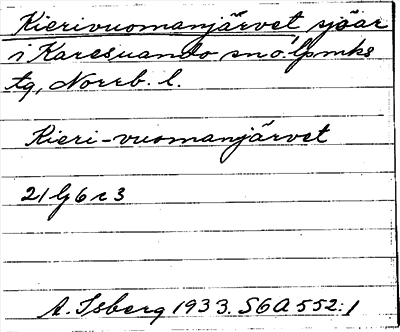 Kierivuomanjärvet, sjöar
i Karesuando sn o. lpmks
tg, Norrb. l.
Kieri-vuomanjärvet
21 lj 6 c 3
A. Isberg 1933. S6A 552:1